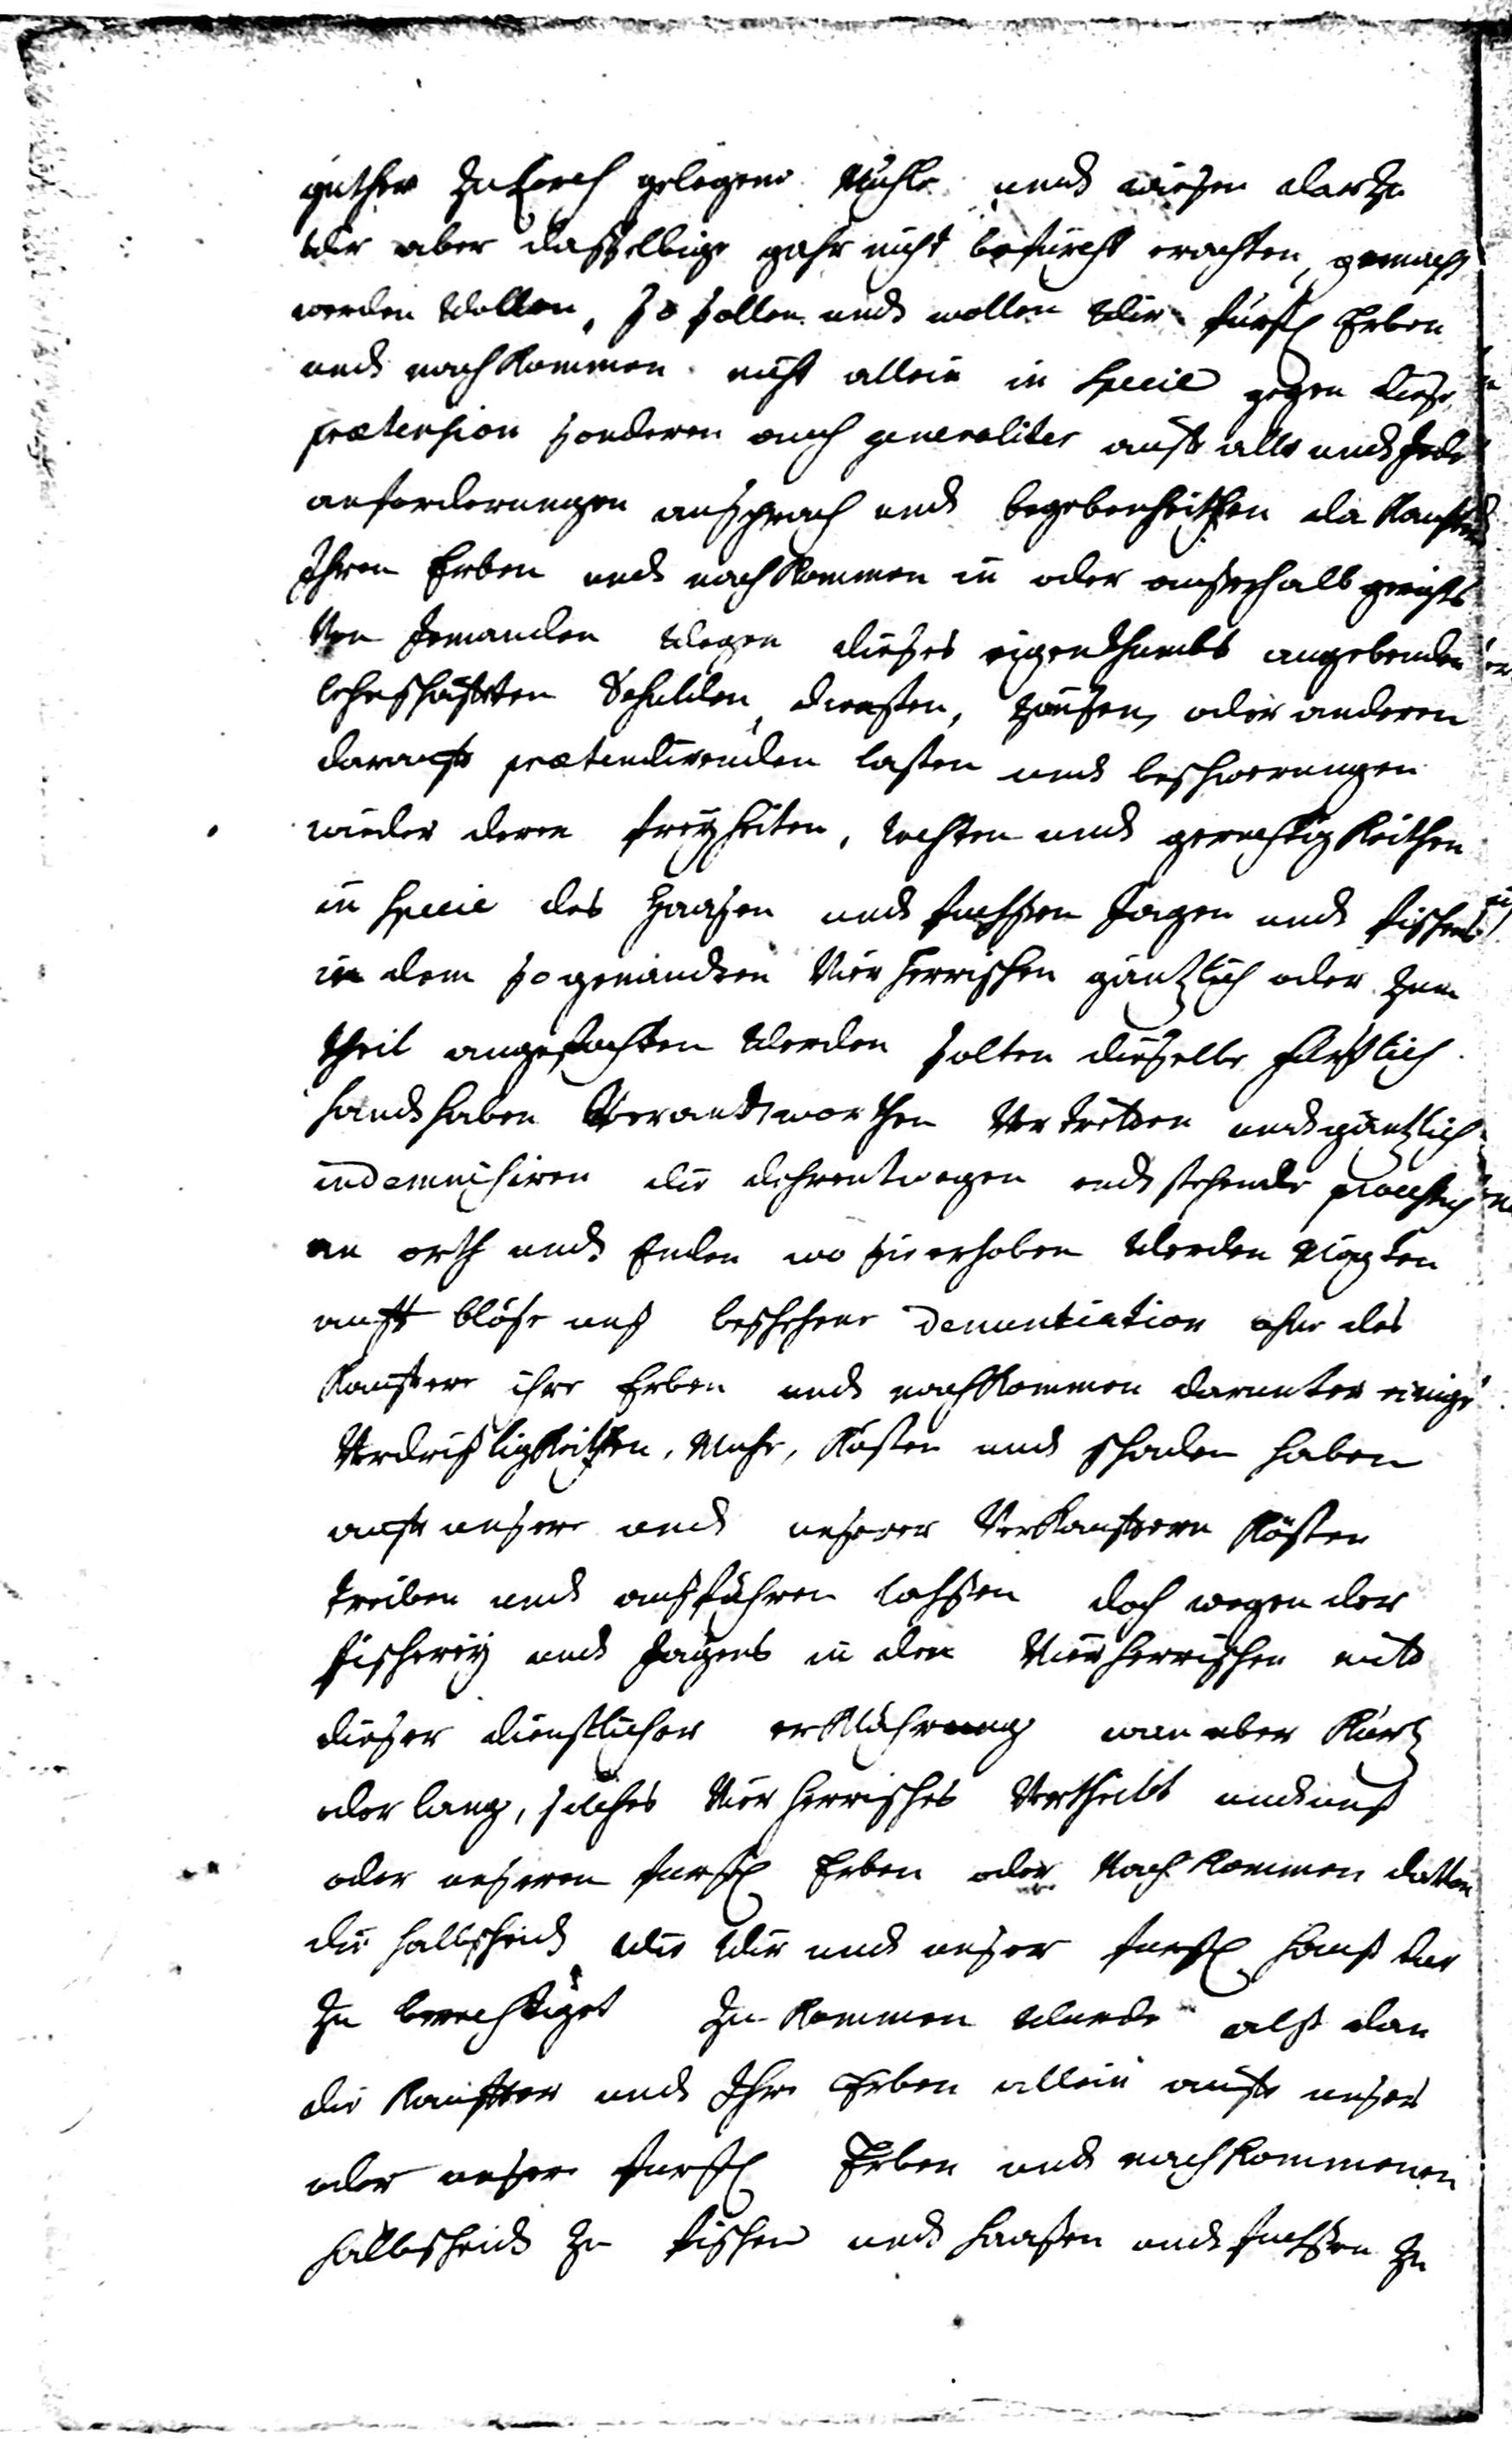 güther zu Lorch gelegene Mühle undt wiesen dar zu
Wir aber dasselbige gahr nicht befürcht erachten, gemacht
werden wollen, so sollen undt wollen Wir fürstl Erben
undt nachkommen nicht allein in specie gegen diese
prætension sonderen auch generaliter auff alle undt Jede
anforderungen ansprach undt begebenheithen da Kauffere
Ihren Erben undt nachkommen in oder ausserhalb gerichts
Von Jemanden Wegen dieses eigenthumbs angebenden
lehnschafften Schulden, diensten, Zinsen, oder anderen
darauff prætendirenden lasten undt beschwerungen
wieder deren freyheiten, rechten undt gerechtigkeithen
in specie des Haasen undt fuchssen Jagen undt fischens
in dem so genandten Vierherrischen gäntzlich oder zum
theil angefochten Werden solten dieselbe fürstlich
handthaben Verandtworthen Vertretten undt gäntzlich
indemnisiren die dehrentwegen endtstehende
an orth undt Enden wo sie erhoben Werden Mögten
auff blose uns beschehene denuntiation ohne das
Kauffere ihre Erben undt nachkommen darunter einige
Verdrisligkeithen, Muhe, Kosten undt schaden haben
auff unsere undt unserer Verkauffern Kösten
treiben undt ausführen lassen doch wegen der
fischerey undt Jagens in den Vierherrischen mit
dieser dienstlicher erklährung wan aber Kurtz
oder lang, solches Vierherrisches Vertheilt undt uns
oder unseren fürstl Erben oder Nachkommen darvon
die halbscheidt wie Wir undt unser fürstl Hauß dar
zu berechtiget zu kommen wurde alß dan
die Kauffer undt Ihre Erben allein auff unser
oder unsere fürstl Erben undt nachkommenen
halbscheidt zu fischen undt haasen undt fuchssen zu